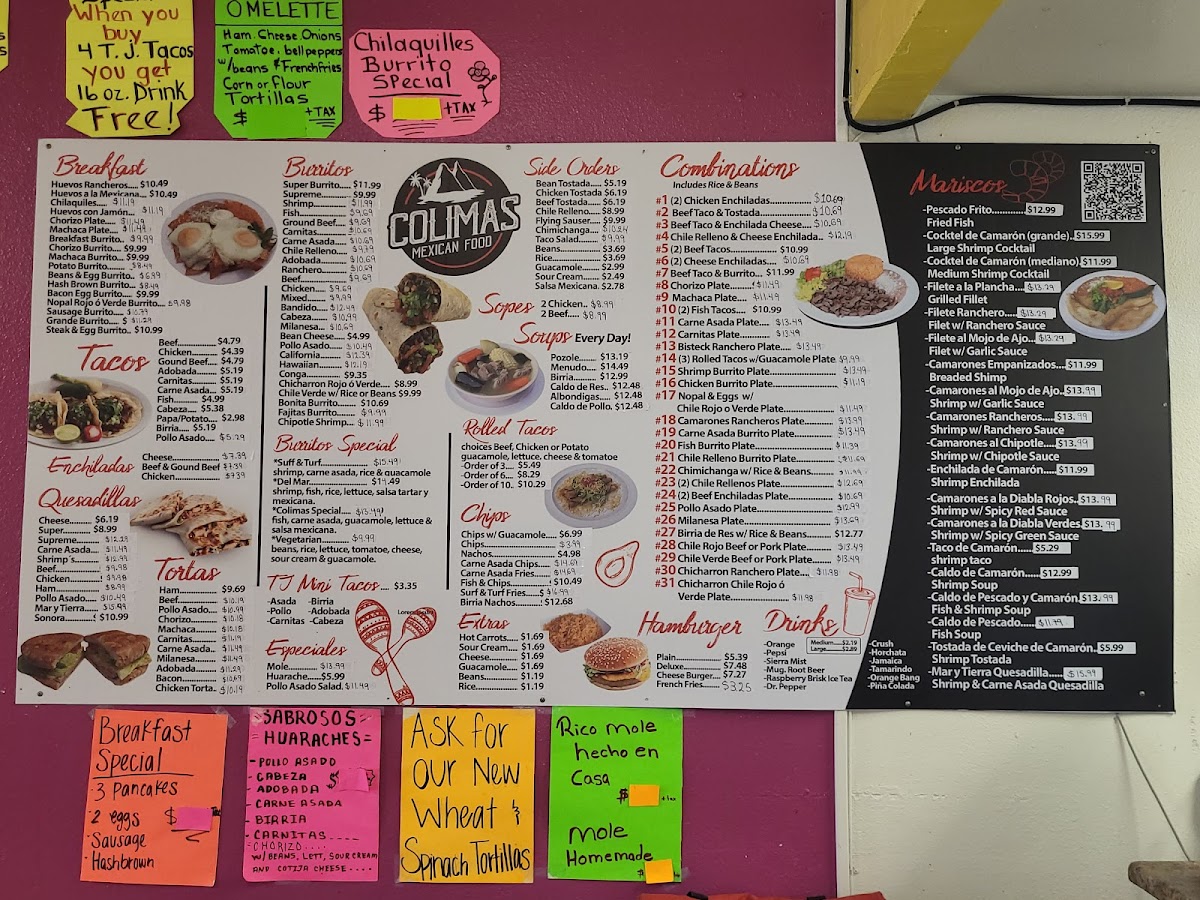 When you
buy
4 T.J. Tacos
you get
16 oz. Drink
Free!
OMELETTE
Ham. Cheese. Onions
Tomatoe, bellpeppers
w/beans & Frenchfries
Corn or flour
Tortillas
$ +TAX
Chilaquilles
Burrito
Special
$ +TAX
Breakfast
Huevos Rancheros..... $10.49
Huevos a la Mexicana... $10.49
Chilaquiles..... $11.19
Huevos con Jamón... $11.19
Chorizo Plate..... $11.49
Machaca Plate.... $11.49
Breakfast Burrito.. $9.99
Chorizo Burrito.... $9.99
Machaca Burrito... $9.99
Potato Burrito..... $8.49
Beans & Egg Burrito.. $6.99
Hash Brown Burrito... $8.49
Bacon Egg Burrito.... $9.99
Nopal Rojo ó Verde Burrito... $9.98
Sausage Burrito.... $10.99
Grande Burrito.... $11.29
Steak & Egg Burrito.. $10.99
Tacos
Beef........... $4.79
Chicken....... $4.39
Gound Beef.... $4.79
Adobada...... $5.19
Carnitas....... $5.19
Carne Asada... $5.19
Fish........... $4.99
Cabeza....... $5.38
Papa/Potato.... $2.98
Birria..... $5.19
Pollo Asado.... $5.29
Enchiladas
Cheese............ $7.39
Beef & Gound Beef $7.39
Chicken........... $7.39
Quesadillas
Cheese........... $6.19
Super........... $8.99
Supreme........ $12.29
Carne Asada.... $11.49
Shrimp´s........ $12.99
Beef............ $9.98
Chicken........ $9.98
Ham............ $8.99
Pollo Asado..... $10.49
Mar y Tierra..... $15.99
Sonora.......... $10.99
Tortas
Ham............ $9.69
Beef............ $10.19
Pollo Asado..... $10.99
Chorizo......... $10.18
Machaca....... $10.18
Carnitas........ $11.19
Carne Asada.. $11.49
Milanesa....... $11.49
Adobada....... $11.29
Bacon.......... $10.69
Chicken Torta.. $10.19
Burritos
Super Burrito..... $11.99
Supreme........ $9.99
Shrimp.......... $11.99
Fish............. $9.69
Ground Beef.... $9.69
Carnitas......... $10.69
Carne Asada.... $10.69
Chile Relleno.... $9.39
Adobada........ $10.69
Ranchero....... $10.69
Beef............ $10.69
Chicken......... $9.69
Mixed........... $9.99
Bandido......... $12.49
Cabeza.......... $10.99
Milanesa........ $10.69
Bean Cheese.... $4.99
Pollo Asado..... $10.49
California........ $12.39
Hawaiian........ $12.19
Conga........... $9.35
Chicharron Rojo ó Verde.... $8.99
Chile Verde w/ Rice or Beans $9.99
Bonita Burrito..... $10.69
Fajitas Burrito..... $9.99
Chipotle Shrimp.... $11.99
Burritos Special
*Suff & Turf............ $15.49
shrimp, carne asada, rice & guacamole
*Del Mar............ $14.49
shrimp, fish, rice, lettuce, salsa tartar y
mexicana.
*Colimas Special..... $13.49
fish, carne asada, guacamole, lettuce &
salsa mexicana.
*Vegetarian.......... $9.99
beans, rice, lettuce, tomatoe, cheese,
sour cream & guacomole.
TJ Mini Tacos.... $3.35
-Asada -Birria
-Pollo -Adobada
-Carnitas -Cabeza
Especiales
Mole............ $13.99
Huarache...... $5.99
Pollo Asado Salad. $11.49
COLIMAS
MEXICAN FOOD
Sopes
2 Chicken.. $8.99
2 Beef..... $8.99
Soups Every Day!
Pozole........ $13.19
Menudo...... $14.49
Birria.......... $12.99
Caldo de Res.. $12.48
Albondigas..... $12.48
Caldo de Pollo. $12.48
Rolled Tacos
choices Beef, Chicken or Potato
guacamole, lettuce. cheese & tomatoe
-Order of 3.... $5.49
-Order of 6.... $8.29
-Order of 10.. $10.29
Chips
Chips w/ Guacamole.... $6.99
Chips............... $3.99
Nachos............. $4.98
Carne Asada Chips..... $14.61
Carne Asada Fries..... $14.69
Fish & Chips......... $10.49
Surf & Turf Fries..... $16.99
Birria Nachos........ $12.68
Extras
Hot Carrots..... $1.69
Sour Cream..... $1.69
Cheese......... $1.69
Guacamole..... $1.69
Beans.......... $1.19
Rice............ $1.19
Side Orders
Bean Tostada..... $5.19
Chicken Tostada $6.19
Beef Tostada..... $6.19
Chile Relleno.... $8.99
Flying Saucer.... $9.99
Chimichanga..... $10.24
Taco Salad....... $9.99
Beans............ $3.69
Rice.............. $3.69
Guacamole....... $2.99
Sour Cream...... $2.49
Salsa Mexicana. $2.78
Combinations
Includes Rice & Beans
#1 (2) Chicken Enchiladas........... $10.69
#2 Beef Taco & Tostada........... $10.69
#3 Beef Taco & Enchilada Cheese.... $10.69
#4 Chile Relleno & Cheese Enchilada.. $12.19
#5 (2) Beef Tacos......... $10.99
#6 (2) Cheese Enchiladas... $10.69
#7 Beef Taco & Burrito... $11.99
#8 Chorizo Plate....... $11.49
#9 Machaca Plate.... $11.49
#10 (2) Fish Tacos.... $10.99
#11 Carne Asada Plate.... $13.49
#12 Carnitas Plate..... $13.49
#13 Bisteck Ranchero Plate.. $13.49
#14 (3) Rolled Tacos w/Guacamole Plate $9.99
#15 Shrimp Burrito Plate........ $13.49
#16 Chicken Burrito Plate....... $11.19
#17 Nopal & Eggs w/
Chile Rojo o Verde Plate........ $11.49
#18 Camarones Rancheros Plate... $13.99
#19 Carne Asada Burrito Plate..... $13.49
#20 Fish Burrito Plate......... $11.39
#21 Chile Relleno Burrito Plate..... $11.69
#22 Chimichanga w/ Rice & Beans...... $11.99
#23 (2) Chile Rellenos Plate....... $12.69
#24 (2) Beef Enchiladas Plate...... $10.69
#25 Pollo Asado Plate.......... $12.99
#26 Milanesa Plate........... $13.69
#27 Birria de Res w/ Rice & Beans..... $12.77
#28 Chile Rojo Beef or Pork Plate..... $13.49
#29 Chile Verde Beef or Pork Plate.... $13.49
#30 Chicharron Ranchero Plate.... $11.98
#31 Chicharron Chile Rojo ó
Verde Plate....... $11.98
Hamburger
Plain............ $5.39
Deluxe.......... $7.48
Cheese Burger.... $7.27
French Fries..... $3.25
Drinks
Medium.....$2.19
Large.......$2.89
-Orange
-Pepsi
-Sierra Mist
-Mug. Root Beer
-Raspberry Brisk Ice Tea
-Dr. Pepper
-Crush
-Horchata
-Jamaica
-Tamarindo
-Orange Bang
-Piña Colada
Mariscos
-Pescado Frito............. $12.99
Fried Fish
-Cocktel de Camarón (grande).. $15.99
Large Shrimp Cocktail
-Cocktel de Camarón (mediano) $11.99
Medium Shrimp Cocktail
-Filete a la Plancha.... $13.29
Grilled Fillet
-Filete Ranchero..... $13.29
Filet w/ Ranchero Sauce
-Filete al Mojo de Ajo.. $13.29
Filet w/ Garlic Sauce
-Camarones Empanizados... $11.99
Breaded Shimp
-Camarones al Mojo de Ajo.. $13.99
Shrimp w/ Garlic Sauce
-Camarones Rancheros.... $13.99
Shrimp w/ Ranchero Sauce
-Camarones al Chipotle.... $13.99
Shrimp w/ Chipotle Sauce
-Enchilada de Camarón..... $11.99
Shrimp Enchilada
-Camarones a la Diabla Rojos.. $13.99
Shrimp w/ Spicy Red Sauce
-Camarones a la Diabla Verdes. $13.99
Shrimp w/ Spicy Green Sauce
-Taco de Camarón..... $5.29
shrimp taco
-Caldo de Camarón..... $12.99
Shrimp Soup
-Caldo de Pescado y Camarón. $13.99
Fish & Shrimp Soup
-Caldo de Pescado..... $11.99
Fish Soup
-Tostada de Ceviche de Camarón.. $5.99
Shrimp Tostada
-Mar y Tierra Quesadilla..... $15.99
Shrimp & Carne Asada Quesadilla
Breakfast
Special
·3 Pancakes
·2 eggs $
·Sausage
·Hashbrown
SABROSOS
=HUARACHES=
-POLLO ASADO
-CABEZA
ADOBADA $
-CARNE ASADA
-BIRRIA
-CARNITAS....
-CHORIZO....
W/BEANS, LETT, SOUR CREAM
AND COTIJA CHEESE....
ASK for
our New
Wheat &
Spinach Tortillas
Rico mole
hecho en
Casa
$ +tax
Mole
Homemade
$